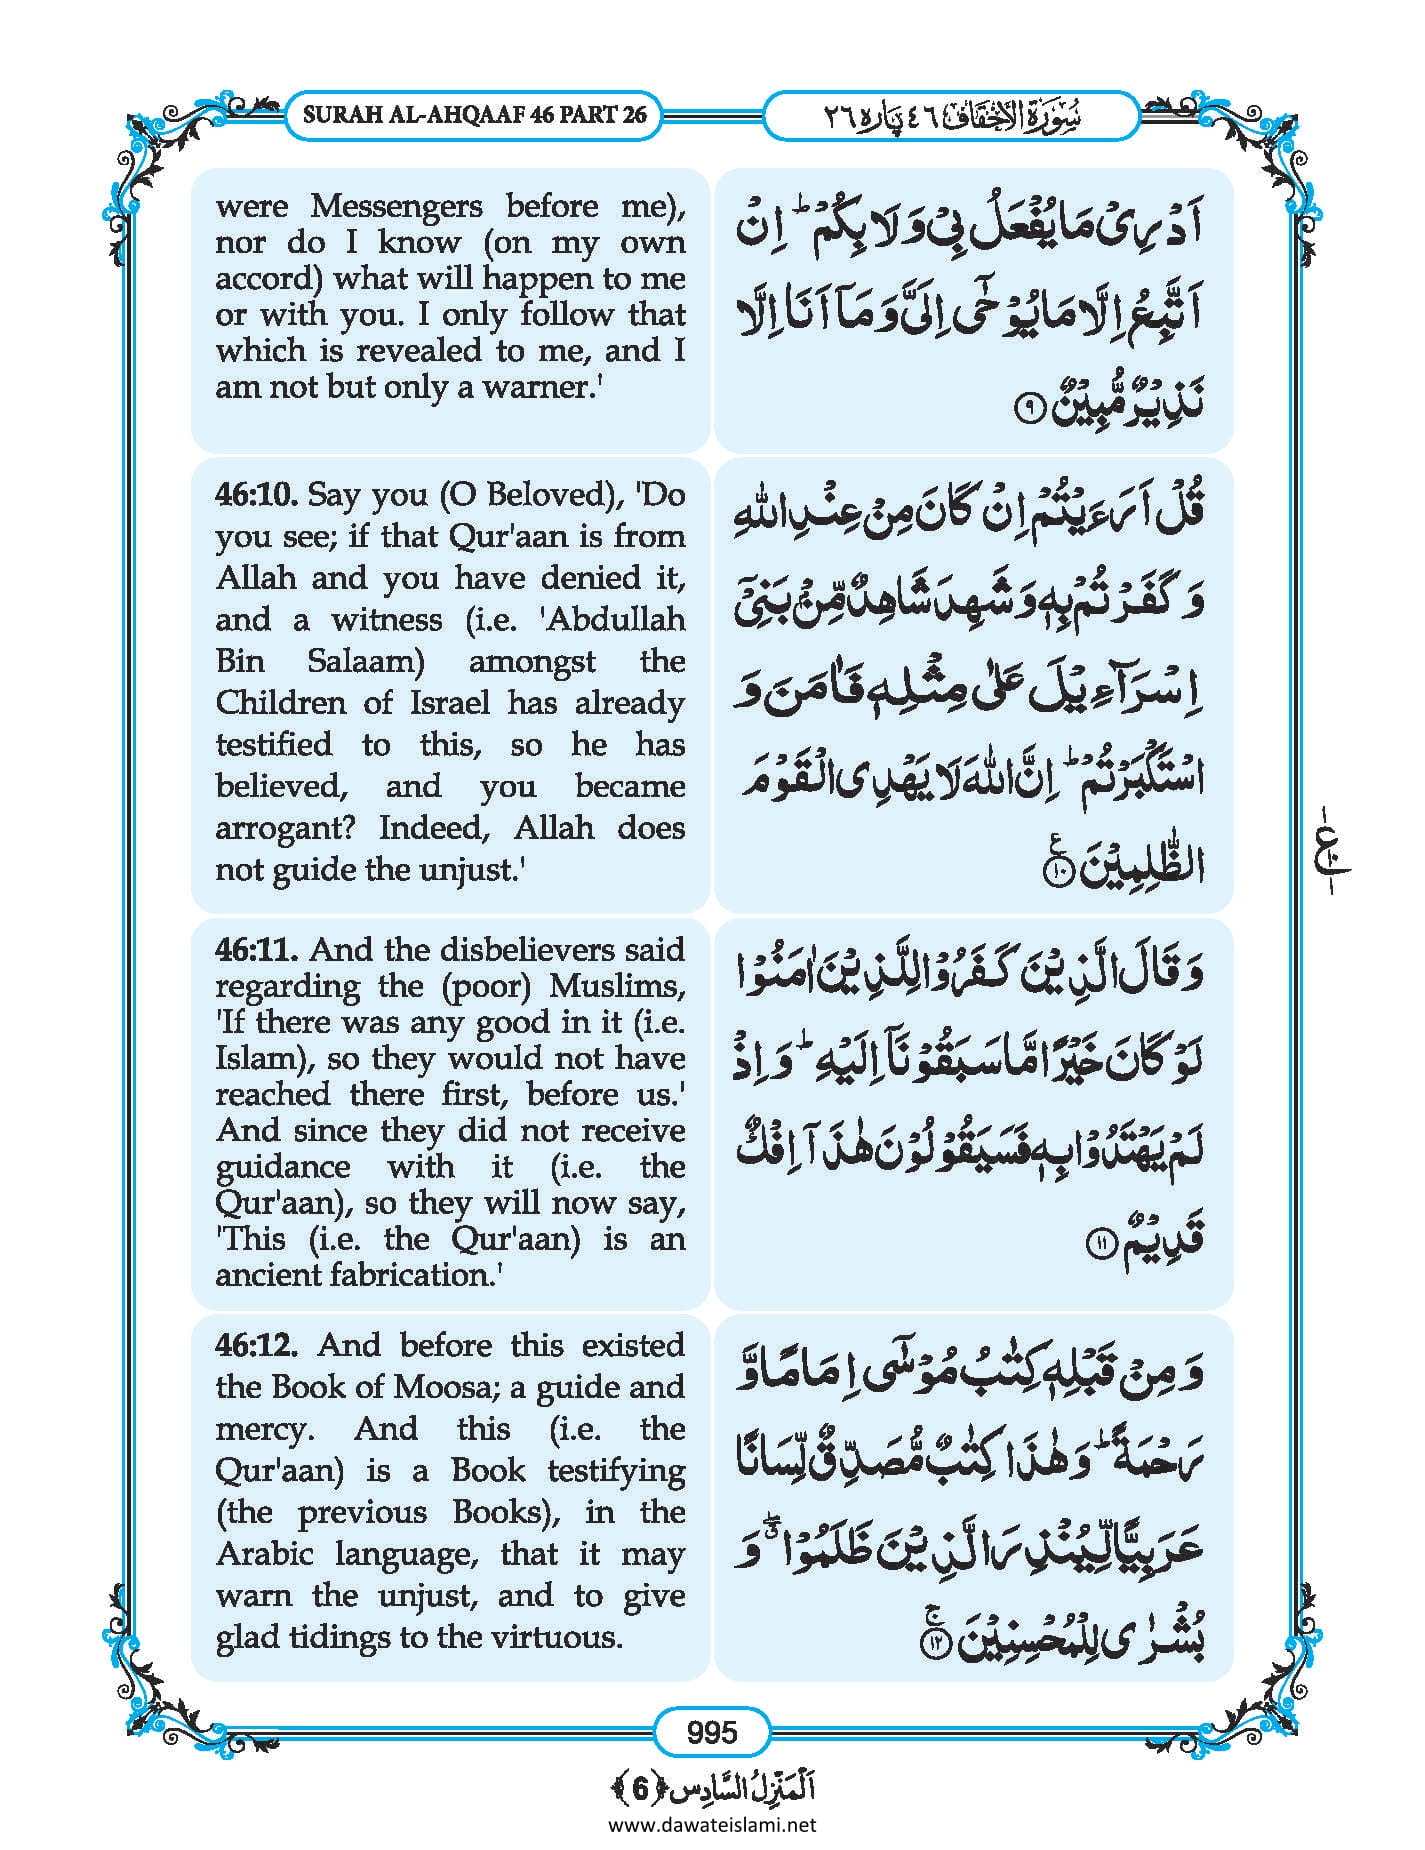 SURAH AL-AHQAAF 46 PART 26
سُوْرَةُ الْاَحْقَافِ ٤٦ پارہ ٢٦
were Messengers before me),
nor do I know (on my own
accord) what will happen to me
or with you. I only follow that
which is revealed to me, and I
am not but only a warner.'
اَدْرِیْ مَا یُفْعَلُ بِیْ وَ لَا بِكُمْؕ اِنْ
اَتَّبِعُ اِلَّا مَا یُوْحٰۤى اِلَیَّ وَ مَاۤ اَنَا اِلَّا
نَذِیْرٌ مُّبِیْنٌ ﴿۹﴾
46:10. Say you (O Beloved), 'Do
you see; if that Qur'aan is from
Allah and you have denied it,
and a witness (i.e. 'Abdullah
Bin Salaam) amongst the
Children of Israel has already
testified to this, so he has
believed, and you became
arrogant? Indeed, Allah does
not guide the unjust.'
قُلْ اَرَءَیْتُمْ اِنْ كَانَ مِنْ عِنْدِ اللّٰهِ
وَ كَفَرْتُمْ بِهٖ وَ شَهِدَ شَاهِدٌ مِّنْۢ بَنِیْۤ
اِسْرَآءِیْلَ عَلٰى مِثْلِهٖ فَاٰمَنَ وَ
اسْتَكْبَرْتُمْؕ اِنَّ اللّٰهَ لَا یَهْدِی الْقَوْمَ
الظّٰلِمِیْنَ ﴿۱۰﴾ ع
46:11. And the disbelievers said
regarding the (poor) Muslims,
'If there was any good in it (i.e.
Islam), so they would not have
reached there first, before us.'
And since they did not receive
guidance with it (i.e. the
Qur'aan), so they will now say,
'This (i.e. the Qur'aan) is an
ancient fabrication.'
وَ قَالَ الَّذِیْنَ كَفَرُوْا لِلَّذِیْنَ اٰمَنُوْا
لَوْ كَانَ خَیْرًا مَّا سَبَقُوْنَاۤ اِلَیْهِؕ وَ اِذْ
لَمْ یَهْتَدُوْا بِهٖ فَسَیَقُوْلُوْنَ هٰذَاۤ اِفْكٌ
قَدِیْمٌ ﴿۱۱﴾
46:12. And before this existed
the Book of Moosa; a guide and
mercy. And this (i.e. the
Qur'aan) is a Book testifying
(the previous Books), in the
Arabic language, that it may
warn the unjust, and to give
glad tidings to the virtuous.
وَ مِنْ قَبْلِهٖ كِتٰبُ مُوْسٰۤى اِمَامًا وَّ
رَحْمَةًؕ وَ هٰذَا كِتٰبٌ مُّصَدِّقٌ لِّسَانًا
عَرَبِیًّا لِّیُنْذِرَ الَّذِیْنَ ظَلَمُوْا ۖۗ وَ
بُشْرٰى لِلْمُحْسِنِیْنَ ﴿۱۲﴾ ج
995
اَلْمَنْزِلُ السَّادِس ﴿6﴾
www.dawateislami.net